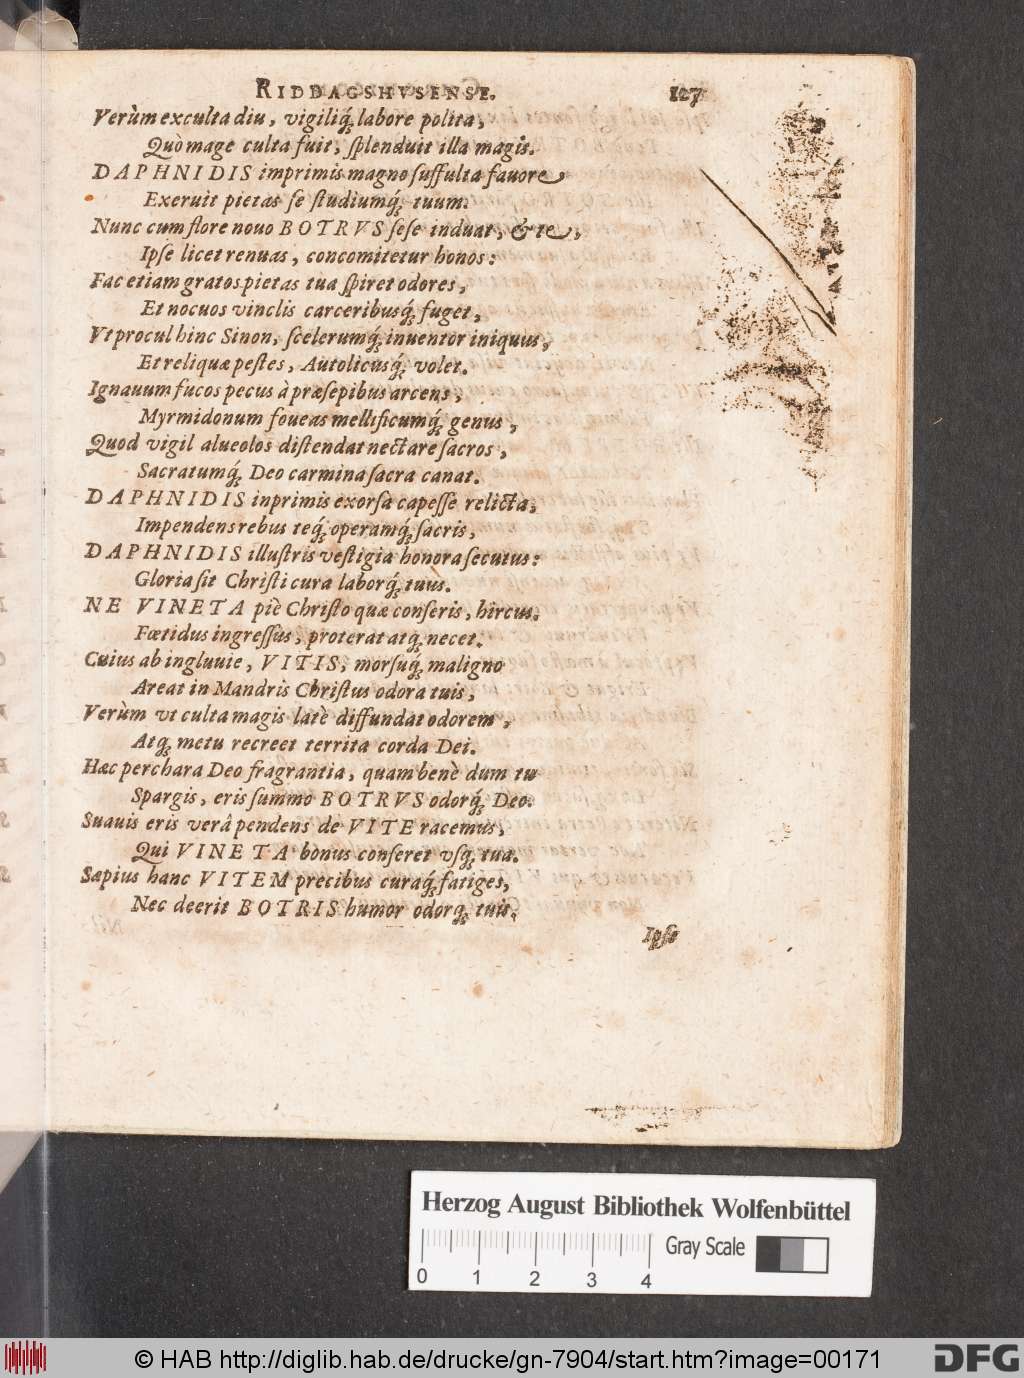 RIDDAGSHVSENSE. 127
Verùm exculta diu, vigiliq́; labore polita,
Quò mage culta fuit, ſplenduit illa magis.
DAPHNIDIS imprimis magno ſuffulta favore
Exeruit pietas ſe ſtudiumq́; tuum.
Nunc cum flore nouo BOTRVS ſeſe induat, & te,
Ipſe licet renuas, concomitetur honos:
Fac etiam gratos pietas tua ſpiret odores,
Et nocuos vinclis carceribusq́; fuget,
Vt procul hinc Sinon, ſcelerumq́; inuentor iniquus,
Et reliquæ peſtes, Autolicusq́; volet.
Ignauum fucos pecus à præſepibus arcens,
Myrmidonum foueas mellificumq́; genus,
Quod vigil alueolos diſtendat nectare ſacros,
Sacratumq́; Deo carmina ſacra canat.
DAPHNIDIS inprimis exorſa capeſſe relicta,
Impendens rebus teq́; operamq́; ſacris,
DAPHNIDIS illuſtris veſtigia honora ſecutus:
Gloria ſit Chriſti cura laborq́; tuus.
NE VINETA piè Chriſto quæ conſeris, hircus
Fœtidus ingreſſus, proterat atq́; necet.
Cuius ab ingluuie, VITIS, morſuq́; maligno
Areat in Mandris Chriſtus odora tuis,
Verùm vt culta magis latè diffundat odorem,
Atq́; metu recreet territa corda Dei.
Hæc perchara Deo fragrantia, quam benè dum tu
Spargis, eris ſummo BOTRVS odorq́; Deo.
Suauis eris verâ pendens de VITE racemus,
Qui VINETA bonus conſeret vſq́; tua.
Sæpius hanc VITEM precibus curaq́; fatiges,
Nec deerit BOTRIS humor odorq́; tuis.
Ipſe
Herzog August Bibliothek Wolfenbüttel
0 1 2 3 4
Gray Scale
© HAB http://diglib.hab.de/drucke/gn-7904/start.htm?image=00171
DFG